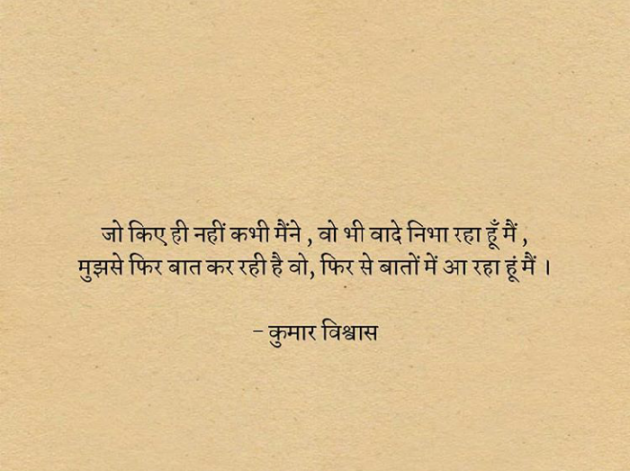 जो किए ही नहीं कभी मैंने , वो भी वादे निभा रहा हूँ मैं ,
मुझसे फिर बात कर रही है वो, फिर से बातों में आ रहा हूं मैं ।
- कुमार विश्वास